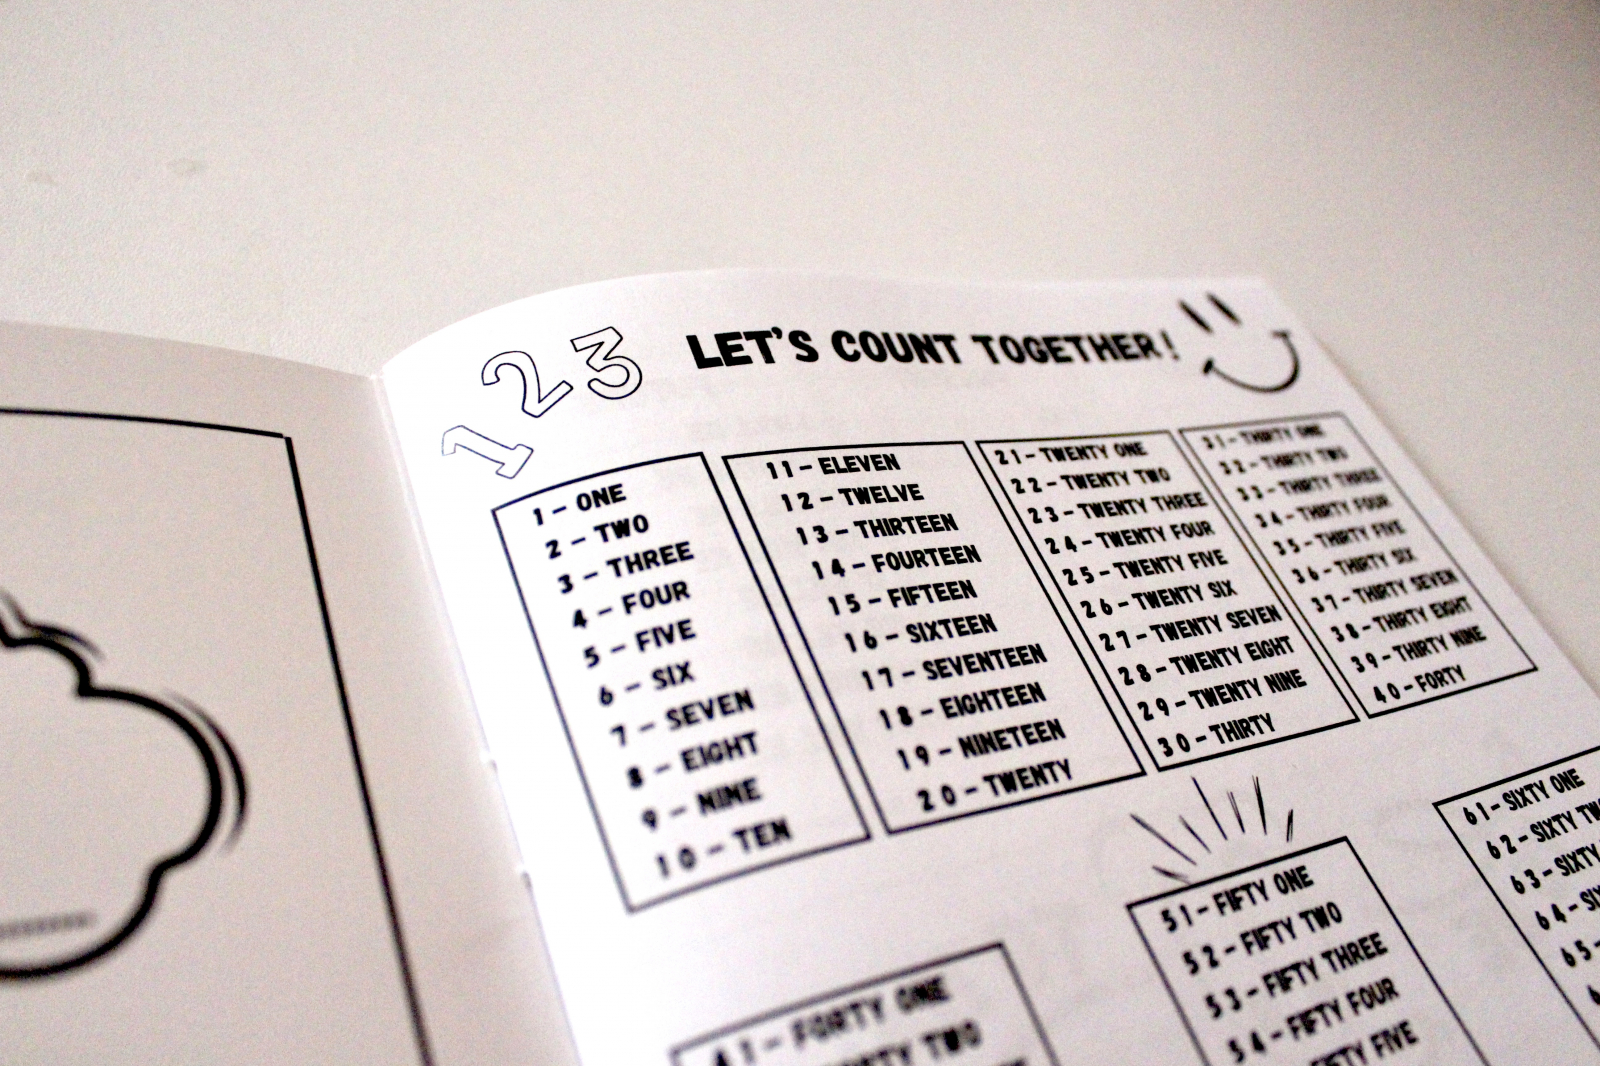 1 2 3
LET'S COUNT TOGETHER!
1 - ONE
2 - TWO
3 - THREE
4 - FOUR
5 - FIVE
6 - SIX
7 - SEVEN
8 - EIGHT
9 - NINE
10 - TEN
11 - ELEVEN
12 - TWELVE
13 - THIRTEEN
14 - FOURTEEN
15 - FIFTEEN
16 - SIXTEEN
17 - SEVENTEEN
18 - EIGHTEEN
19 - NINETEEN
20 - TWENTY
21 - TWENTY ONE
22 - TWENTY TWO
23 - TWENTY THREE
24 - TWENTY FOUR
25 - TWENTY FIVE
26 - TWENTY SIX
27 - TWENTY SEVEN
28 - TWENTY EIGHT
29 - TWENTY NINE
30 - THIRTY
31 - THIRTY ONE
32 - THIRTY TWO
33 - THIRTY THREE
34 - THIRTY FOUR
35 - THIRTY FIVE
36 - THIRTY SIX
37 - THIRTY SEVEN
38 - THIRTY EIGHT
39 - THIRTY NINE
40 - FORTY
41 - FORTY ONE
TWO
51 - FIFTY ONE
52 - FIFTY TWO
53 - FIFTY THREE
54 - FIFTY FOUR
FIFTY FIVE
61 - SIXTY ONE
62 - SIXTY TW
63 - SIXTY
64 - SI
65 -